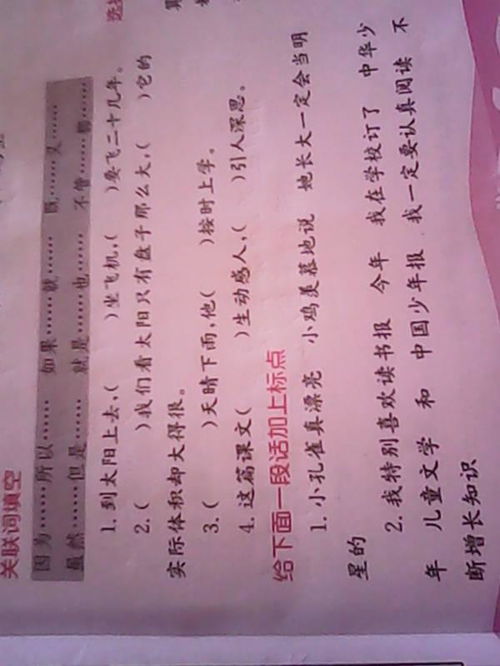 关联词填空
因为……所以…… 如果……就…… 既……又……
虽然……但是…… 就是……也…… 不管……都……
1. 到太阳上去,( )坐飞机,( )要飞二十几年。
2. ( )我们看太阳只有盘子那么大,( )它的
实际体积却大得很。
3. ( )天晴下雨,他( )按时上学。
4. 这篇课文( )生动感人,( )引人深思。
给下面一段话加上标点
1. 小孔雀真漂亮 小鸡羡慕地说 她长大一定会当明
星的
2. 我特别喜欢读书报 今年 我在学校订了 中华少
年 儿童文学 和 中国少年报 我一定要认真阅读 不
断增长知识